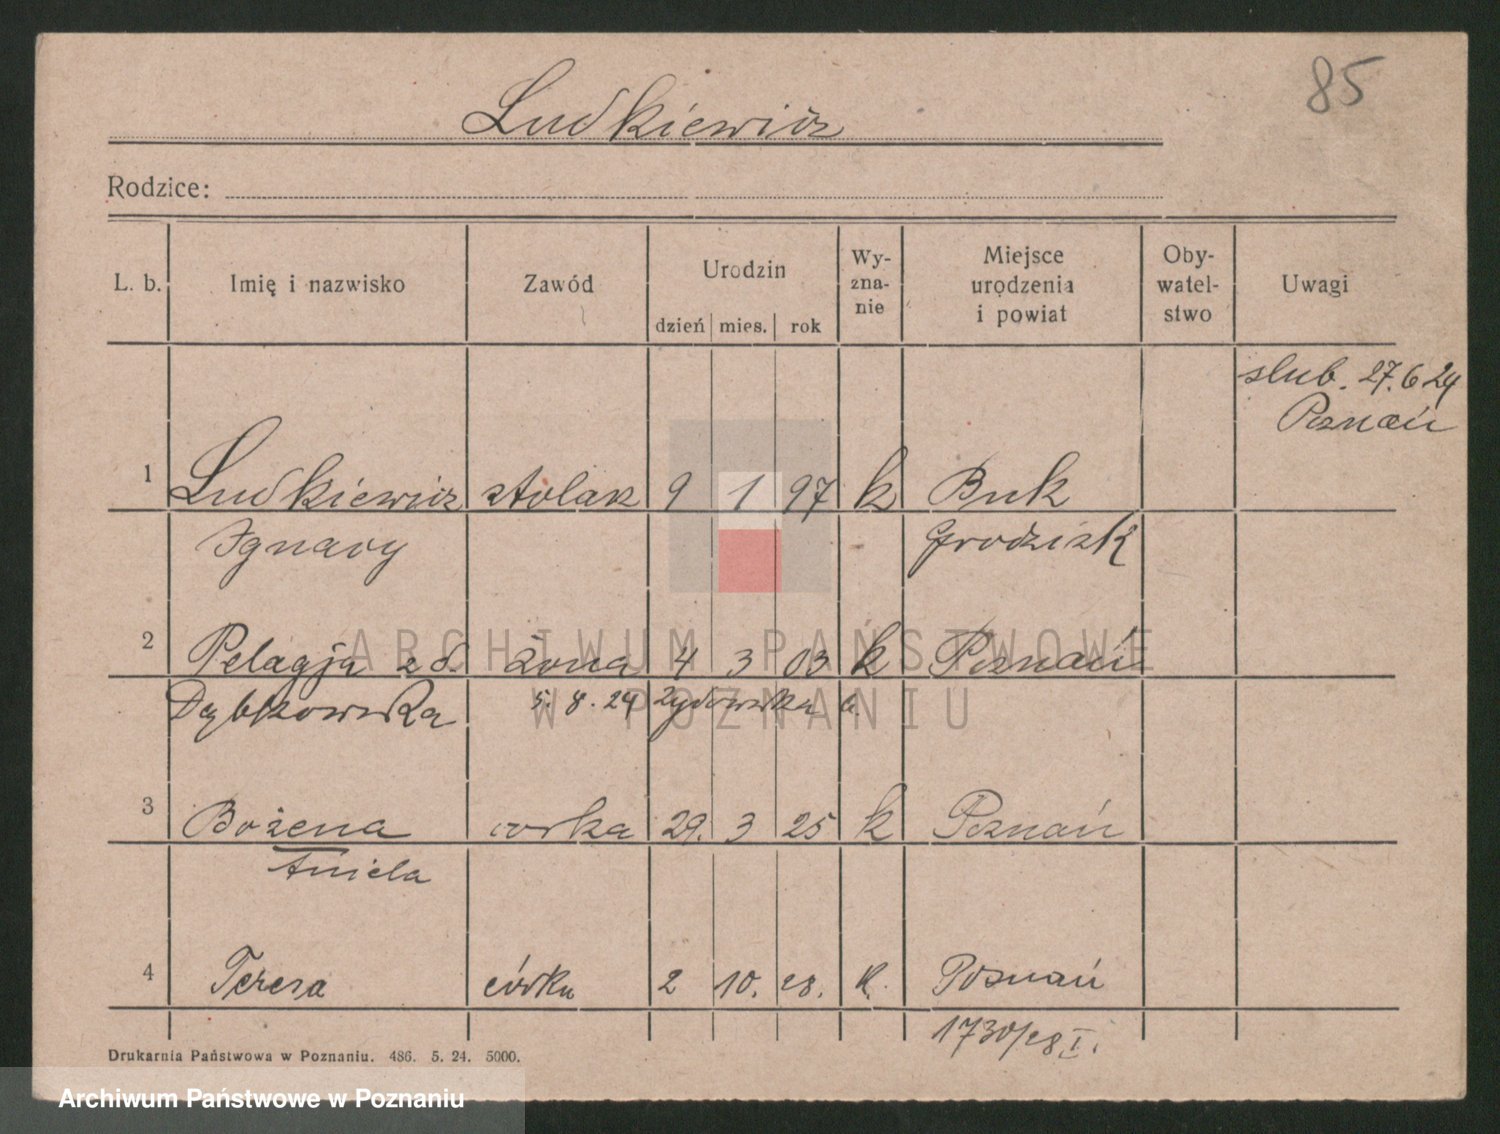 85
Ludkiewicz
Rodzice:
L. b. Imię i nazwisko Zawód Urodzin dzień mies. rok Wy-zna-nie Miejsce urodzenia i powiat Oby-watel-stwo Uwagi
slub. 27.6 24
Poznań
1 Ludkiewicz stolarz 9 1 97 k Buk
Ignacy Grodzisk
2 Pelagja z d. żona 4 3 03 k Poznań
Dębkowska 5. 8. 24 Żydowska 6.
3 Bożena corka 29. 3 25 k Poznań
Aniela
4 Teresa córka 2 10. 28. K. Poznań
1730/28 I.
Drukarnia Państwowa w Poznaniu. 486. 5. 24. 5000.
ARCHIWUM PAŃSTWOWE
W POZNANIU
Archiwum Państwowe w Poznaniu